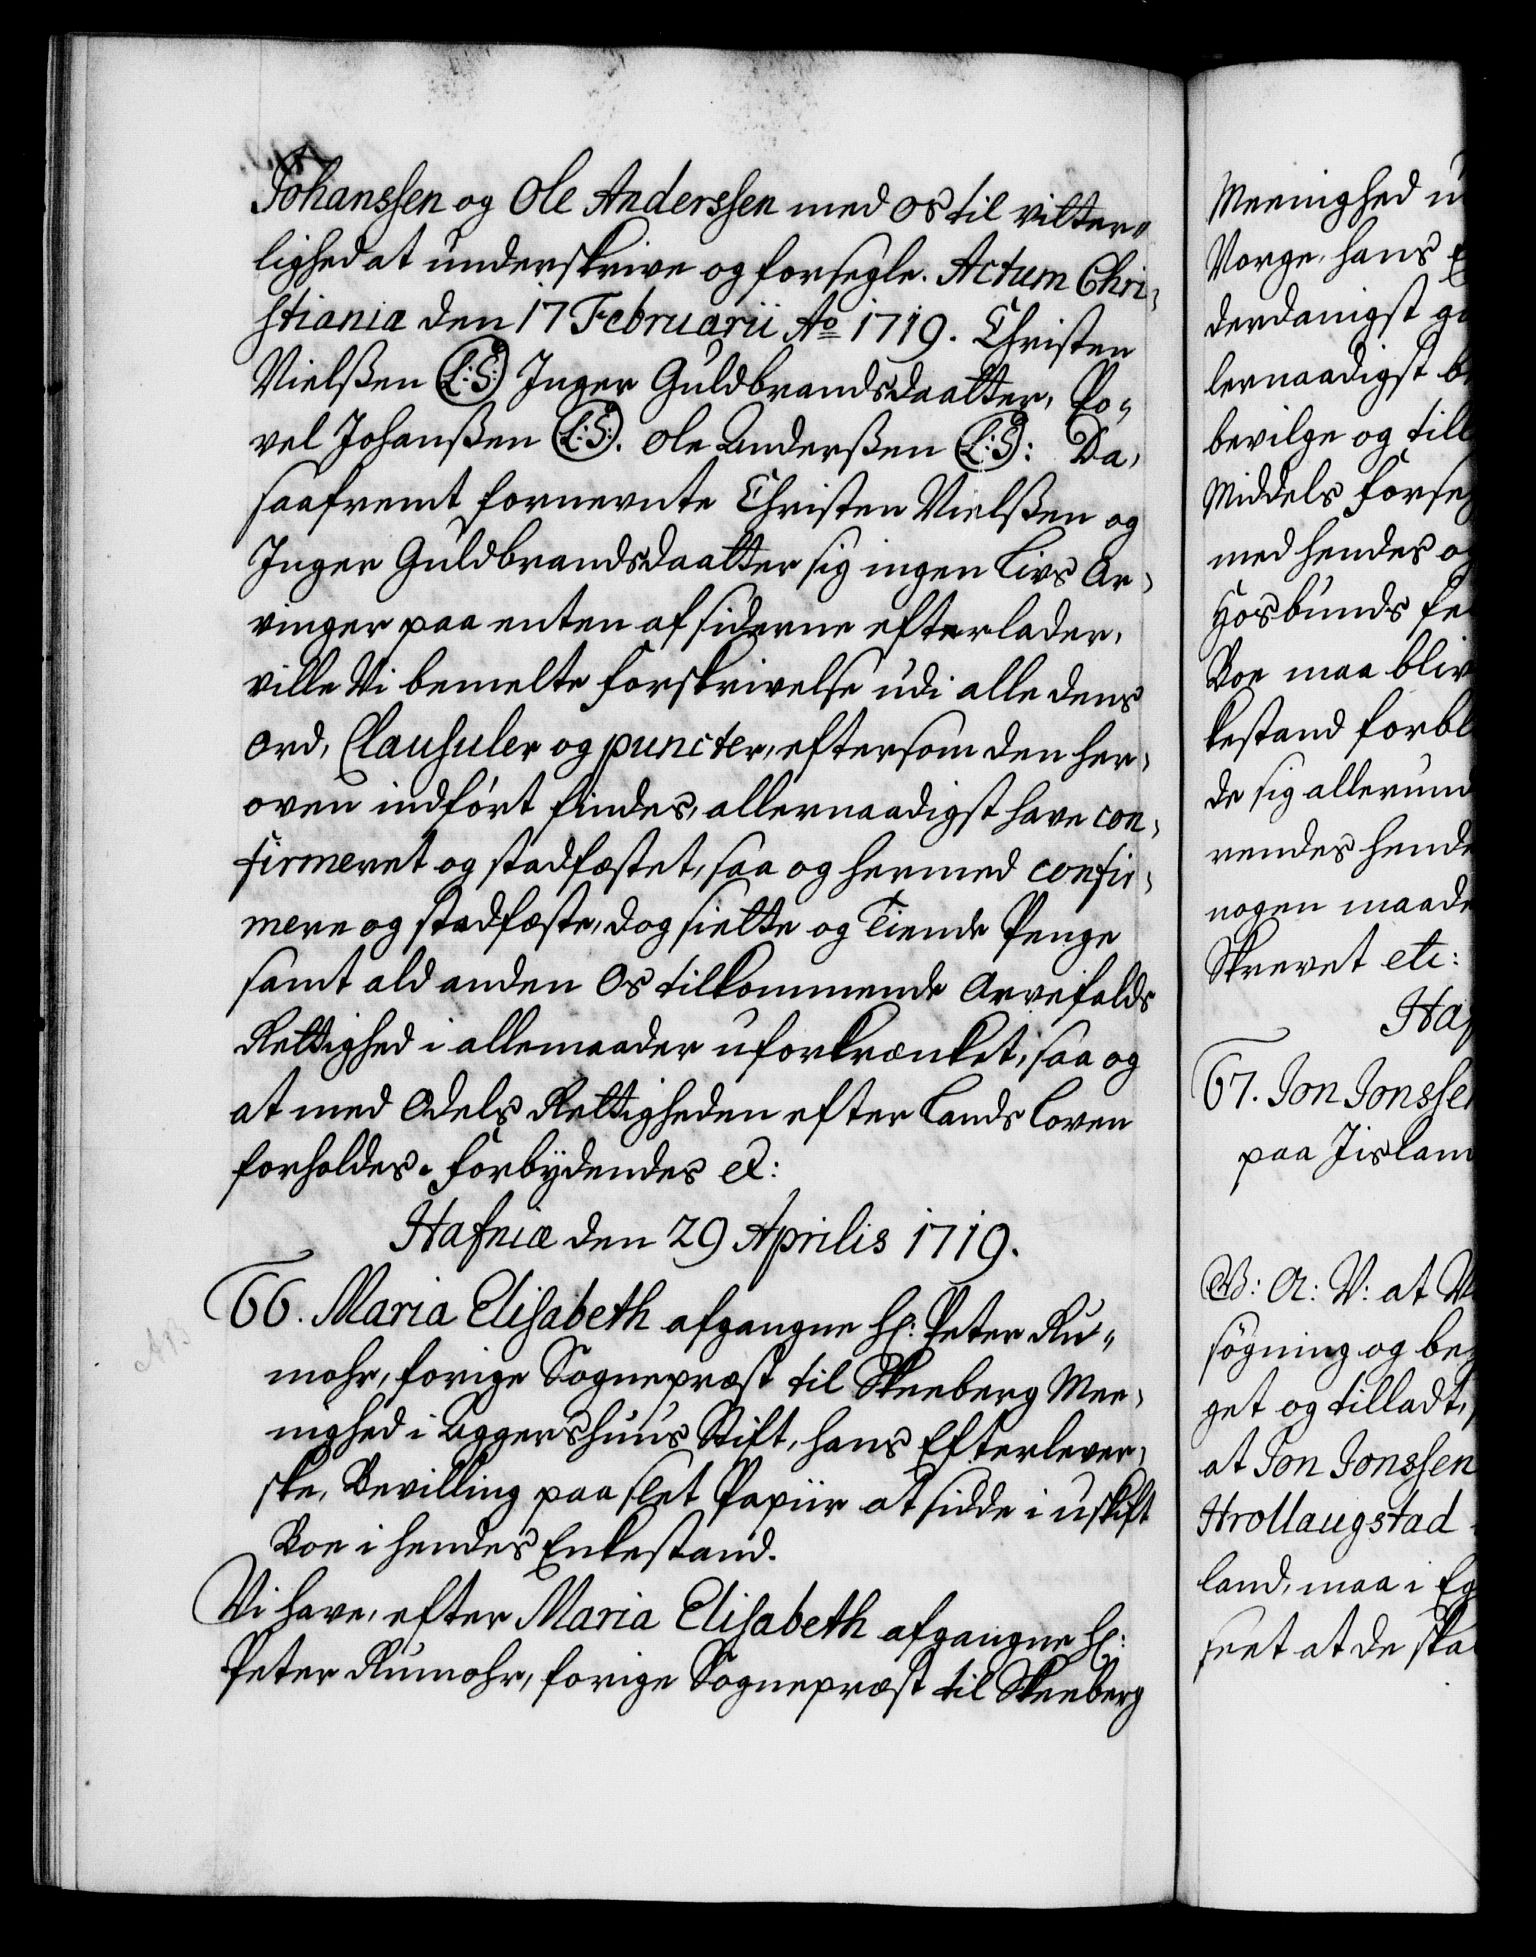 Johanssen og Ole Anderssen med os til vitter„
lighed at underskrive og forsegle. Actum Chri¸
stianiæ den 17 Februarii Ao 1719. Christen
Nielsßen (L:S:) Inger Guldbrandsdaatter, Po„
vel Johanßen (L:S:). Ole Anderßen (L:S): Da,
saafremt fornevnte Christen Nielßen og
Inger Guldbrandsdaatter sig ingen Livs Ar¸
vinger paa enten af siderne efterlader,
ville Vi bemelte forskrivelse udi alle dens
ord, Clausuler og puncter, eftersom den her¸
oven indført findes, allernaadigst have con¸
firmeret og stadfæstet, saa og hermed confir¸
mere og stadfæste, dog siette og Tiende Penge
samt ald anden Os tilkommende Arvefalds
Rettighed i allemaader uforkrænket, saa og
at med Odels Rettigheden efter Lands Loven
forholdes. Forbydendes etc:
Hafniæ den 29 Aprilis 1719.
66. Maria Elisabeth afgangne Hr: Peter Ru„
mohr, forige Sognepræst til Skeeberg Mee¸
nighed i Aggershuus Stift, hans Efterlever¸
ske, Bevilling paa slet Papiir at sidde i uskift
Boe i hendes Enkestand.
Vi have, efter Maria Elisabeth afgangne Hr:
Peter Rumohr, forige Sognepræst til Skeeberg
Meenighed u
Norge, hans
derdanigst
lernaadigst
bevilge og till
Middels forse
med hendes og
Hosbunds
Boe maa bliv
kestand forbl
de sig allerund
rendes hende
nogen maade
Skrevet etc:
Haf
67. Jon Jonssen
paa Jisland
G: A: V: at V
søgning og be
get og tilladt,
at Jon Jonssen
Hrollaugstad
land, maa i
seet at de ska